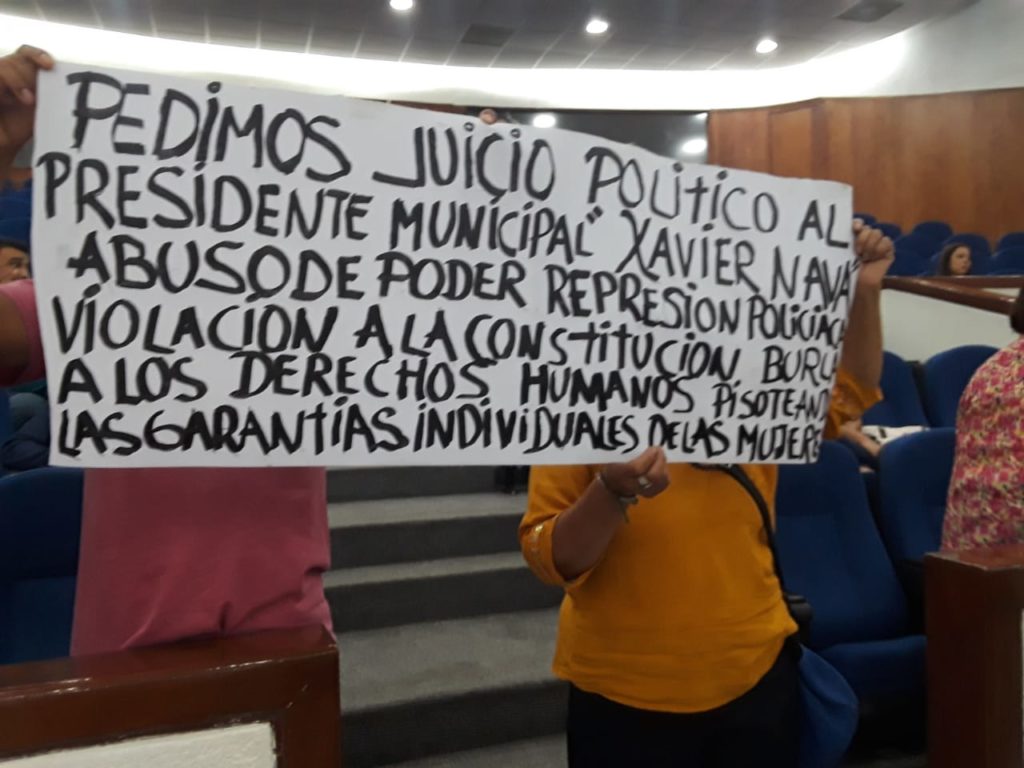 PEDIMOS JUICIO POLITICO AL
PRESIDENTE MUNICIPAL "XAVIER NAVA"
ABUSO DE PODER REPRESION POLICIACA
VIOLACION A LA CONSTITUCION BURLA
A LOS DERECHOS HUMANOS PISOTEAND
LAS GARANTIAS INDIVIDUALES DE LAS MUJERES